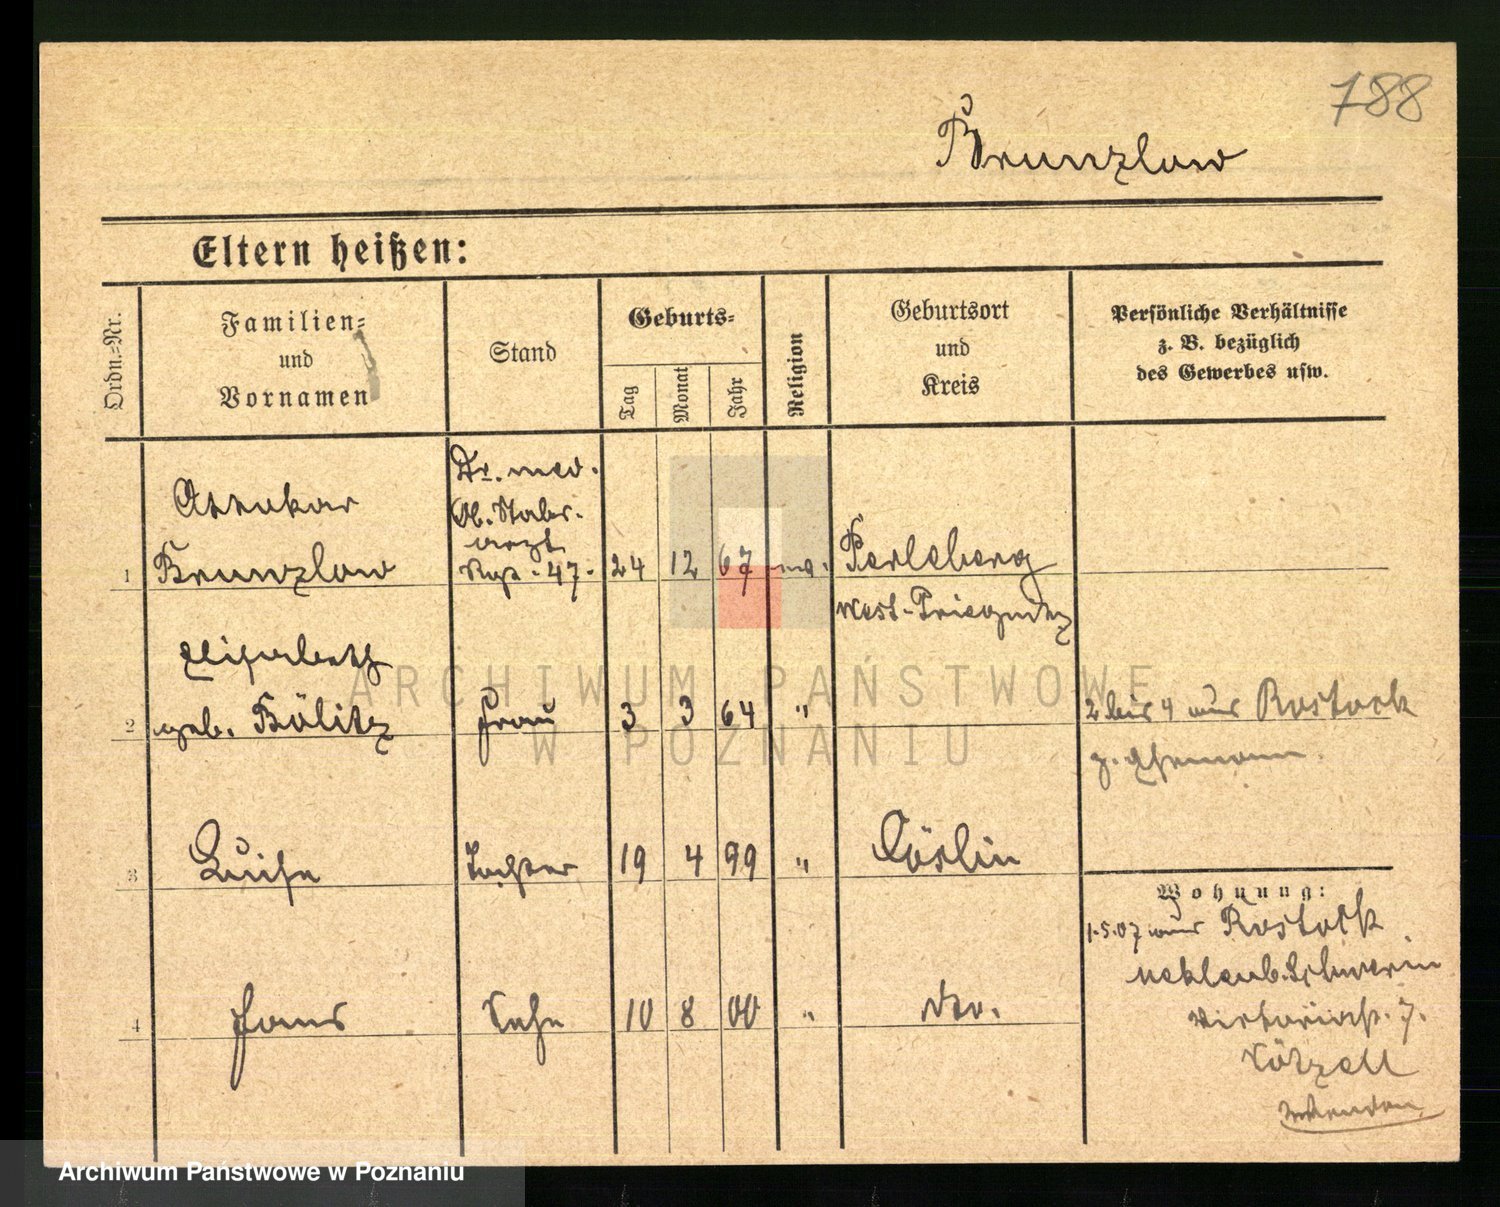 788
Brunzlow
Eltern heißen:
Ordn.-Nr.
Familien-
und
Vornamen
Stand
Geburts-
Tag
Monat
Jahr
Religion
Geburtsort
und
Kreis
Persönliche Verhältnisse
z. B. bezüglich
des Gewerbes usw.
Dr. med.
Ottokar
Ob. Stabs-
arzt
1 Brunzlow Rgt. 47. 24 12 67 ev. Perleberg
West-Priegnitz
Elisabeth
2 geb. Bölitz Frau 3 3 64 " 2 bis 4 aus Rostock
z. Ehemann.
3 Luise Tochter 19 4 99 " Cöslin
Wohnung:
1.5.07 aus Rostock
Meklenb. Schwerin
4 Hans Sohn 10 8 00 " do.
Victoriastr. 7.
ARCHIWUM PAŃSTWOWE
W POZNANIU
Archiwum Państwowe w Poznaniu